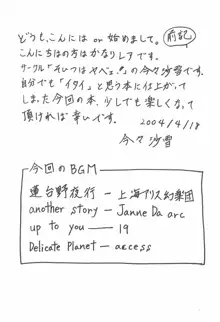 どうも、こんにちは or 始めまして。
前記
こんにちはの方はかなりレアです。
サークル「そいつはヤベぇ。」の今々沙雪です。
自分でも「イタイ」と思う本に仕上がって
しまった今回の本、少しでも楽しくなって
頂ければ幸いです。
2004/4/18
今々沙雪
今回のBGM
蓮台野夜行 ー 上海アリス幻樂団
another story ー Janne Da arc
up to you ー 19
Delicate Planet ー access